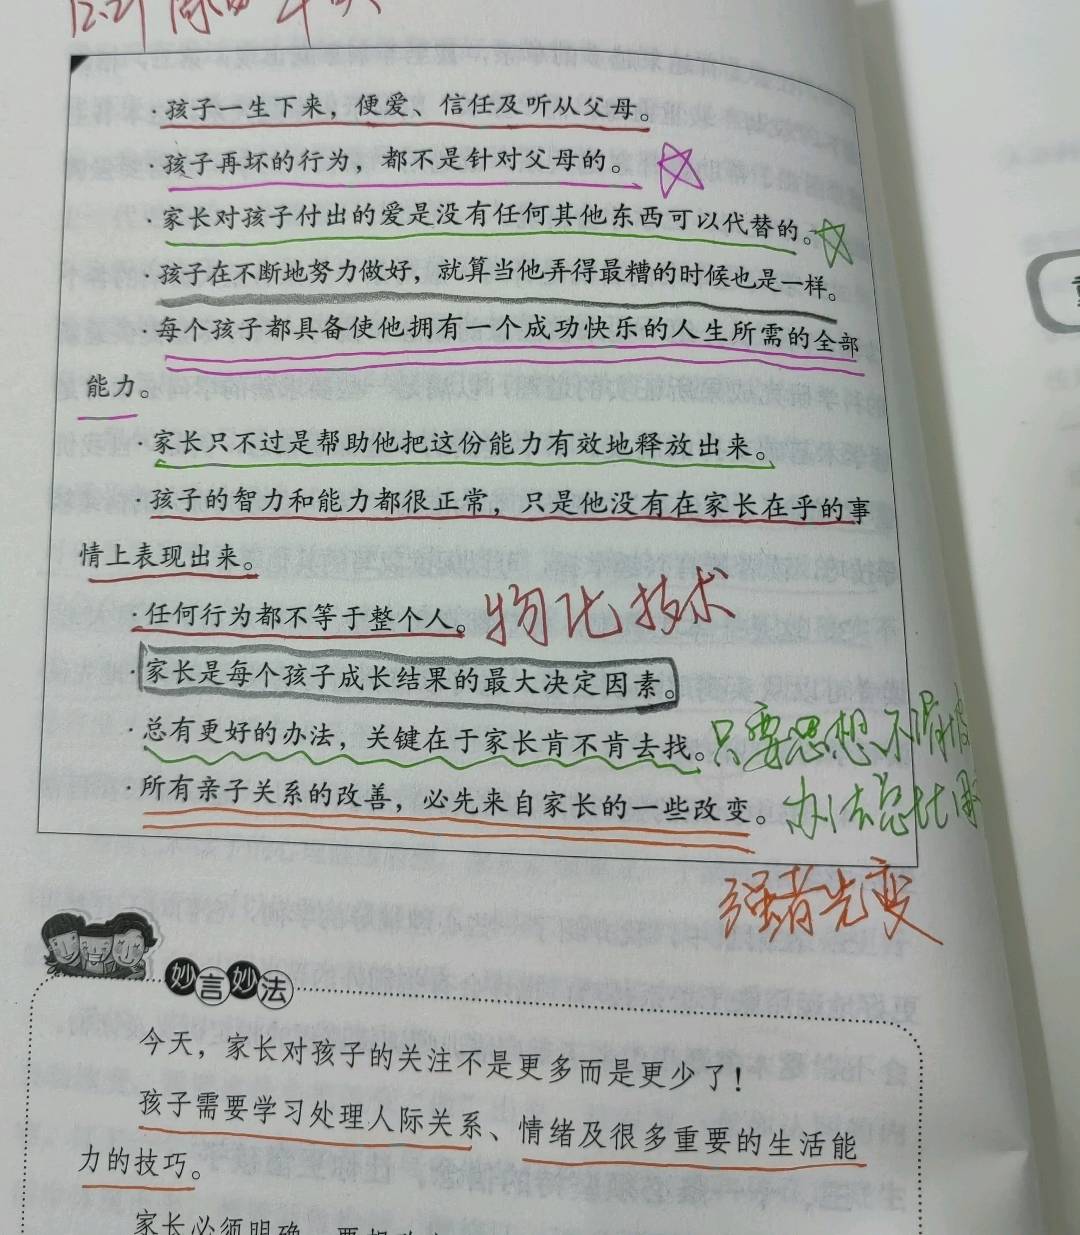 ·孩子一生下来，便爱、信任及听从父母。
·孩子再坏的行为，都不是针对父母的。
·家长对孩子付出的爱是没有任何其他东西可以代替的。
·孩子在不断地努力做好，就算当他弄得最糟的时候也是一样。
·每个孩子都具备使他拥有一个成功快乐的人生所需的全部
能力。
·家长只不过是帮助他把这份能力有效地释放出来。
·孩子的智力和能力都很正常，只是他没有在家长在乎的事
情上表现出来。
·任何行为都不等于整个人。 物化技术
·家长是每个孩子成长结果的最大决定因素。
·总有更好的办法，关键在于家长肯不肯去找。 只要思想不滑坡
·所有亲子关系的改善，必先来自家长的一些改变。 办法总比
强者先变
妙言妙法
今天，家长对孩子的关注不是更多而是更少了！
孩子需要学习处理人际关系、情绪及很多重要的生活能
力的技巧。
家长必须明确